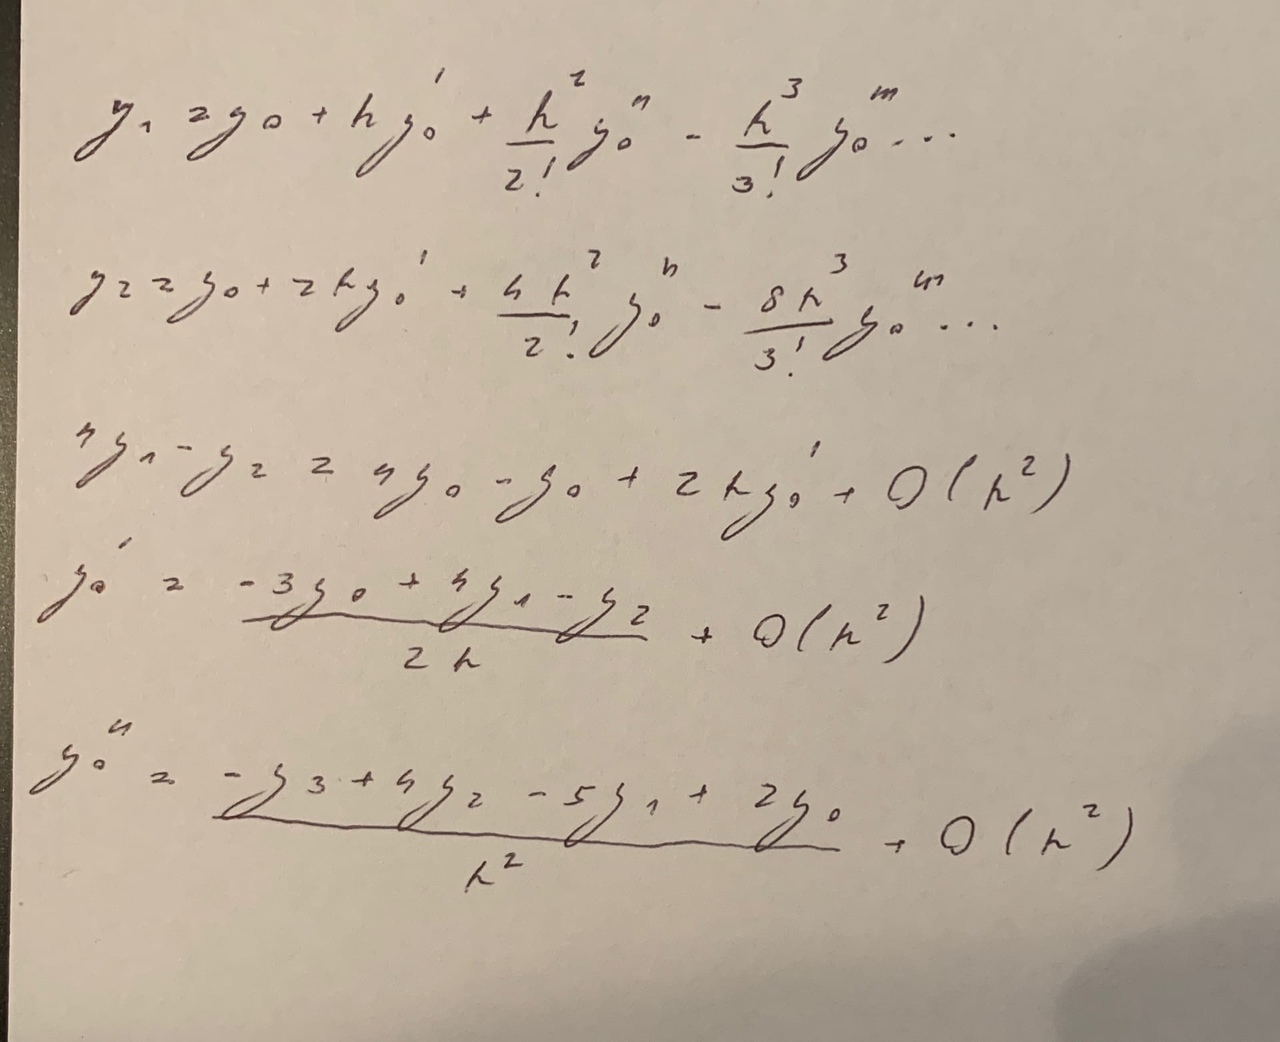 y₁ = y₀ + hy₀' + h²/2! y₀'' - h³/3! y₀''' ...
y₂ = y₀ + 2hy₀' + 4h²/2! y₀'' - 8h³/3! y₀''' ...
4y₁ - y₂ = 4y₀ - y₀ + 2hy₀' + O(h²)
y₀' = (-3y₀ + 4y₁ - y₂)/2h + O(h²)
y₀'' = (-y₃ + 4y₂ - 5y₁ + 2y₀)/h² + O(h²)